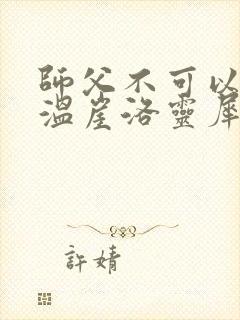 師父不可以
溫崖洛靈犀
許婧